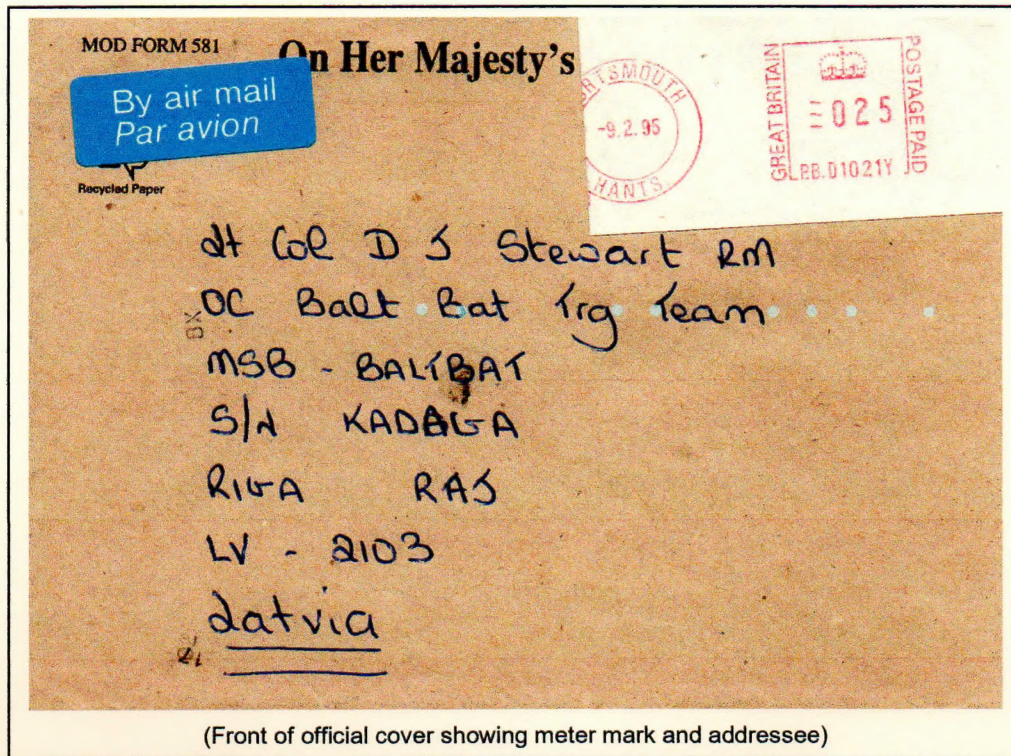 MOD FORM 581
On Her Majesty's
By air mail
Par avion
Recycled Paper
PORTSMOUTH
-9.2.95
HANTS.
GREAT BRITAIN
025
P.B.D1021Y
POSTAGE PAID
Lt Col D J Stewart RM
OC Balt Bat Trg Team
MSB - BALTBAT
S/N KADAGA
RIGA RAJ
LV - 2103
Latvia
(Front of official cover showing meter mark and addressee)